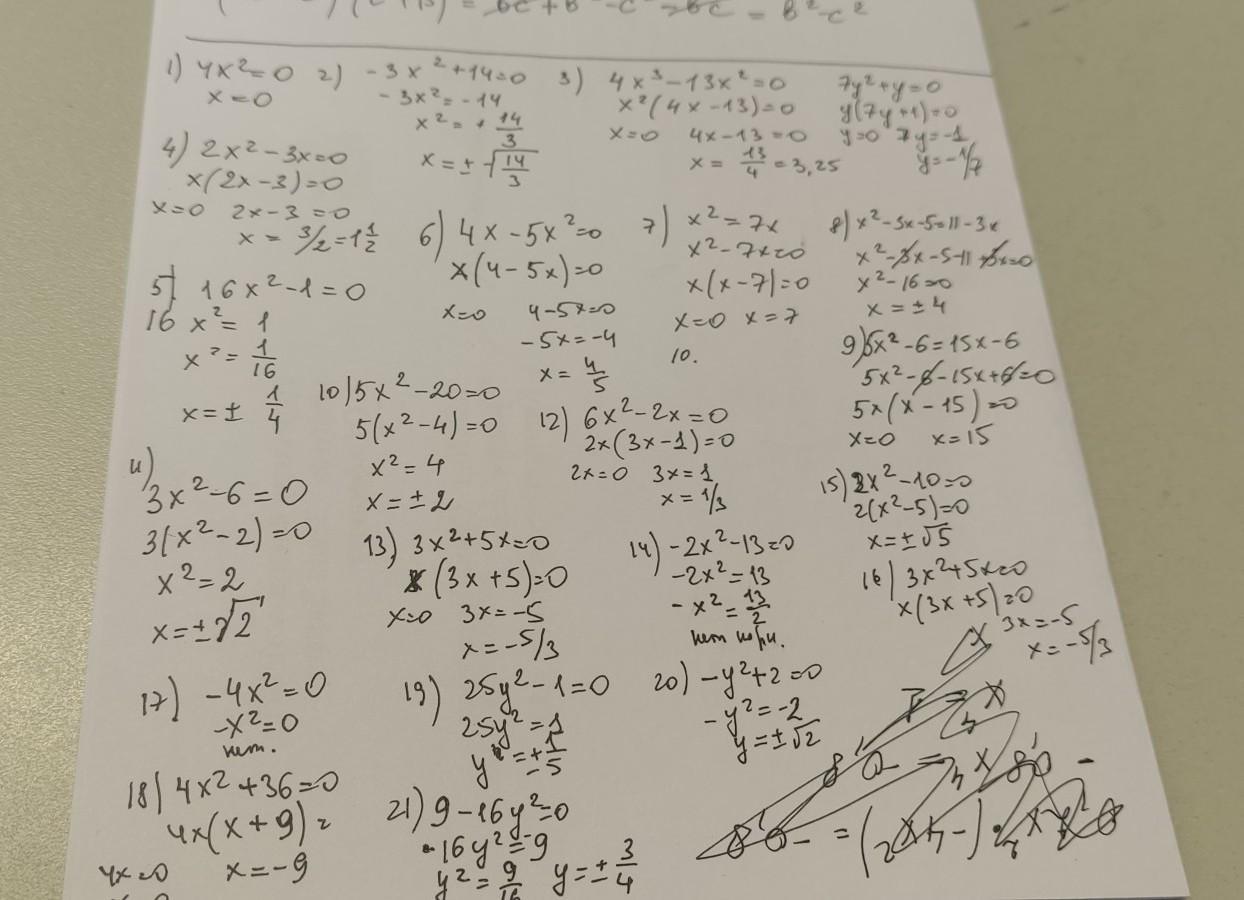 = 6c + b² - c² - 6c = b² - c²
1) 4x² = 0
x = 0
2) -3x² + 14 = 0
-3x² = -14
x² = + 14/3
x = ± √14/3
3) 4x³ - 13x² = 0
x²(4x - 13) = 0
x = 0 4x - 13 = 0
x = 13/4 = 3,25
7y² + y = 0
y(7y + 1) = 0
y = 0 7y = -1
y = -1/7
4) 2x² - 3x = 0
x(2x - 3) = 0
x = 0 2x - 3 = 0
x = 3/2 = 1 1/2
5) 16x² - 1 = 0
16x² = 1
x² = 1/16
x = ± 1/4
6) 4x - 5x² = 0
x(4 - 5x) = 0
x = 0 4 - 5x = 0
-5x = -4
x = 4/5
7) x² = 7x
x² - 7x = 0
x(x - 7) = 0
x = 0 x = 7
10.
8) x² - 3x - 5 = 11 - 3x
x² - 3x - 5 - 11 + 3x = 0
x² - 16 = 0
x = ± 4
9) 5x² - 6 = 15x - 6
5x² - 6 - 15x + 6 = 0
5x(x - 15) = 0
x = 0 x = 15
10) 5x² - 20 = 0
5(x² - 4) = 0
x² = 4
x = ± 2
11)
3x² - 6 = 0
3(x² - 2) = 0
x² = 2
x = ± √2
12) 6x² - 2x = 0
2x(3x - 1) = 0
2x = 0 3x = 1
x = 1/3
13) 3x² + 5x = 0
x(3x + 5) = 0
x = 0 3x = -5
x = -5/3
14) -2x² - 13 = 0
-2x² = 13
-x² = 13/2
нет корн.
15) 2x² - 10 = 0
2(x² - 5) = 0
x = ± √5
16) 3x² + 5x = 0
x(3x + 5) = 0
3x = -5
x = -5/3
17) -4x² = 0
-x² = 0
нет.
18) 4x² + 36 = 0
4x(x + 9) =
4x = 0 x = -9
19) 25y² - 1 = 0
25y² = 1
y = ± 1/5
20) -y² + 2 = 0
-y² = -2
y = ± √2
21) 9 - 16y² = 0
-16y² = -9
y² = 9/16 y = ± 3/4